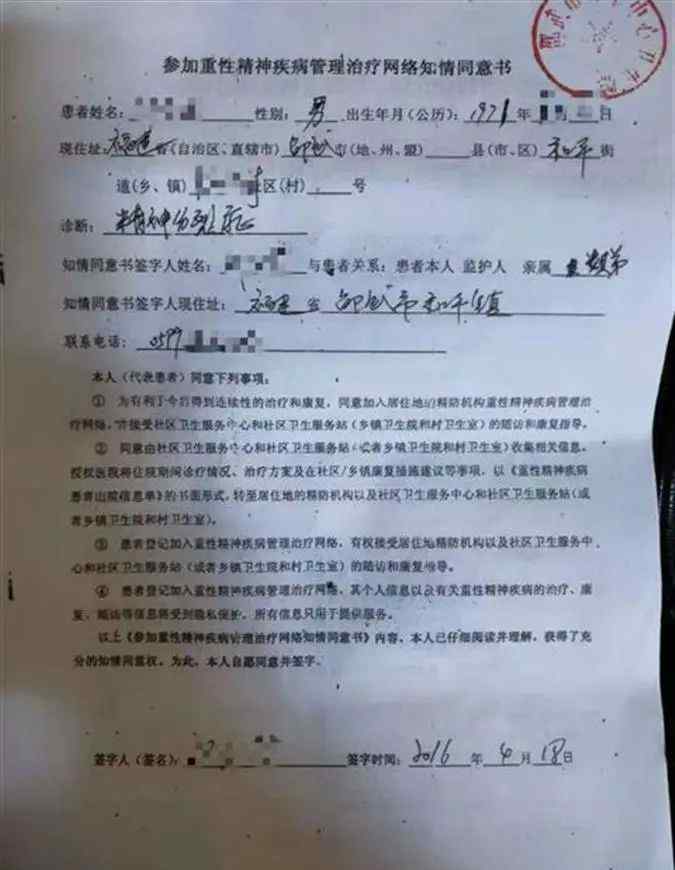 参加重性精神疾病管理治疗网络知情同意书
患者姓名： 性别：男 出生年月（公历）：1971年 日
现住址：福建省（自治区、直辖市）邵武市（地、州、盟） 县（市、区）和平街
道（乡、镇） 区（村） 号
诊断：精神分裂症
知情同意书签字人姓名： 与患者关系：患者本人 监护人 亲属 弟
知情同意书签字人现住址：福建省邵武市和平镇
联系电话：0599
本人（代表患者）同意下列事项：
① 为有利于今后得到连续性的治疗和康复，同意加入居住地的精防机构重性精神疾病管理治
疗网络，并接受社区卫生服务中心和社区卫生服务站（乡镇卫生院和村卫生室）的随访和康复指导。
② 同意由社区卫生服务中心和社区卫生服务站（或者乡镇卫生院和村卫生室）收集相关信息，
授权医院将住院期间诊疗情况、治疗方案及在社区/乡镇康复措施建议等事项，以《重性精神疾病
患者出院信息单》的书面形式，转至居住地的精防机构以及社区卫生服务中心和社区卫生服务站（或
者乡镇卫生院和村卫生室）。
③ 患者登记加入重性精神疾病管理治疗网络，有权接受居住地精防机构以及社区卫生服务中
心和社区卫生服务站（或者乡镇卫生院和村卫生室）的随访和康复指导。
④ 患者登记加入重性精神疾病管理治疗网络，其个人信息以及有关重性精神疾病的治疗、康
复、随访等信息将受到隐私保护，所有信息只用于提供服务。
以上《参加重性精神疾病管理治疗网络知情同意书》内容，本人已仔细阅读并理解，获得了充
分的知情同意权，为此，本人自愿同意并签字。
签字人（签名）： 签字时间：2016年4月18日